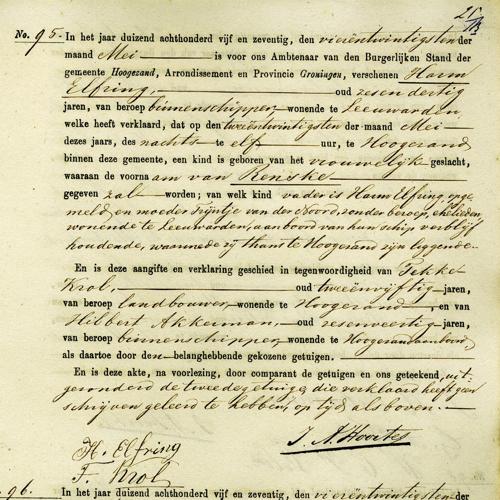 No. 95. In het jaar duizend achthonderd vijf en zeventig, den vierentwintigsten der
maand Mei is voor ons Ambtenaar van den Burgerlijken Stand der
gemeente Hoogezand, Arrondissement en Provincie Groningen, verschenen Harm
Elfring. oud zesendertig
jaren, van beroep binnenschipper, wonende te Leeuwarden,
welke heeft verklaard, dat op den tweeëntwintigsten der maand Mei
dezes jaars, des nachts te elf uur, te Hoogezand
binnen deze gemeente, een kind is geboren van het vrouwelijk geslacht,
waaraan de voornaam van Renske
gegeven zal worden; van welk kind vader is Harm Elfring, opge
meld, en moeder Trijntje van der Noord, zonder beroep, ehelieden,
wonende te Leeuwarden, aan boord van hun schip verblijf
houdende, waarmede zij thans te Hoogezand zijn liggende.
En is deze aangifte en verklaring geschied in tegenwoordigheid van Fekke
Krol, oud tweeënvijftig jaren,
van beroep landbouwer, wonende te Hoogezand, en van
Hilbert Akkerman, oud zesenveertig jaren,
van beroep binnenschipper, wonende te Hoogezand aan boord,
als daartoe door deze belanghebbende gekozene getuigen.
En is deze akte, na voorlezing, door comparant de getuigen en ons geteekend, uit-
gezonderd de tweede getuige, die verklaard heeft geen
schrijven geleerd te hebben, op tijd als boven.
H. Elfring
F. Krol
96. In het jaar duizend achthonderd vijf en zeventig, den vierentwintigsten der